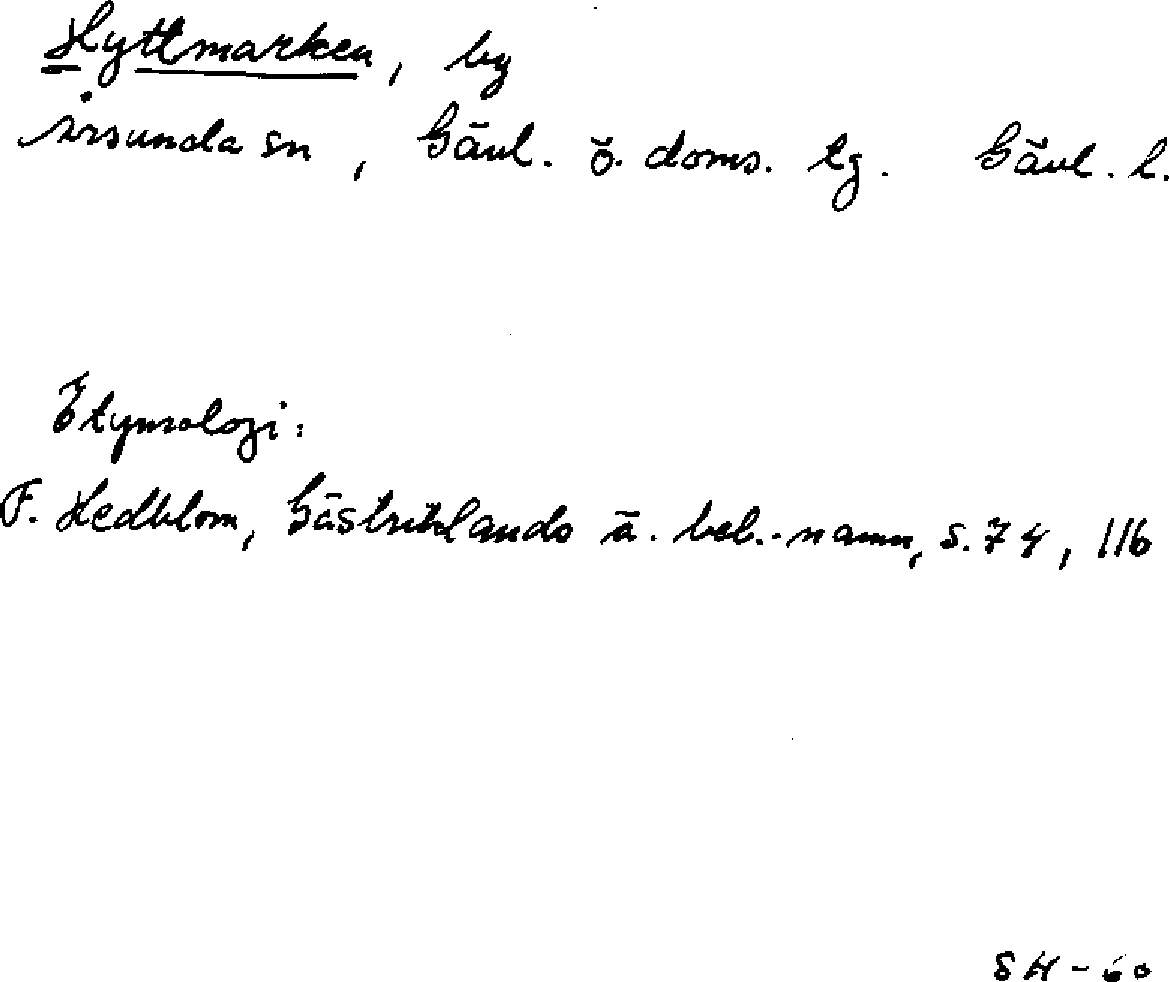 Hyttmarken, by
Årsunda sn, Gävl. ö. doms. tg. Gävl. l.
Etymologi:
F. Hedblom, Gästriklands ä. beb.-namn, s. 74, 116
SH-60